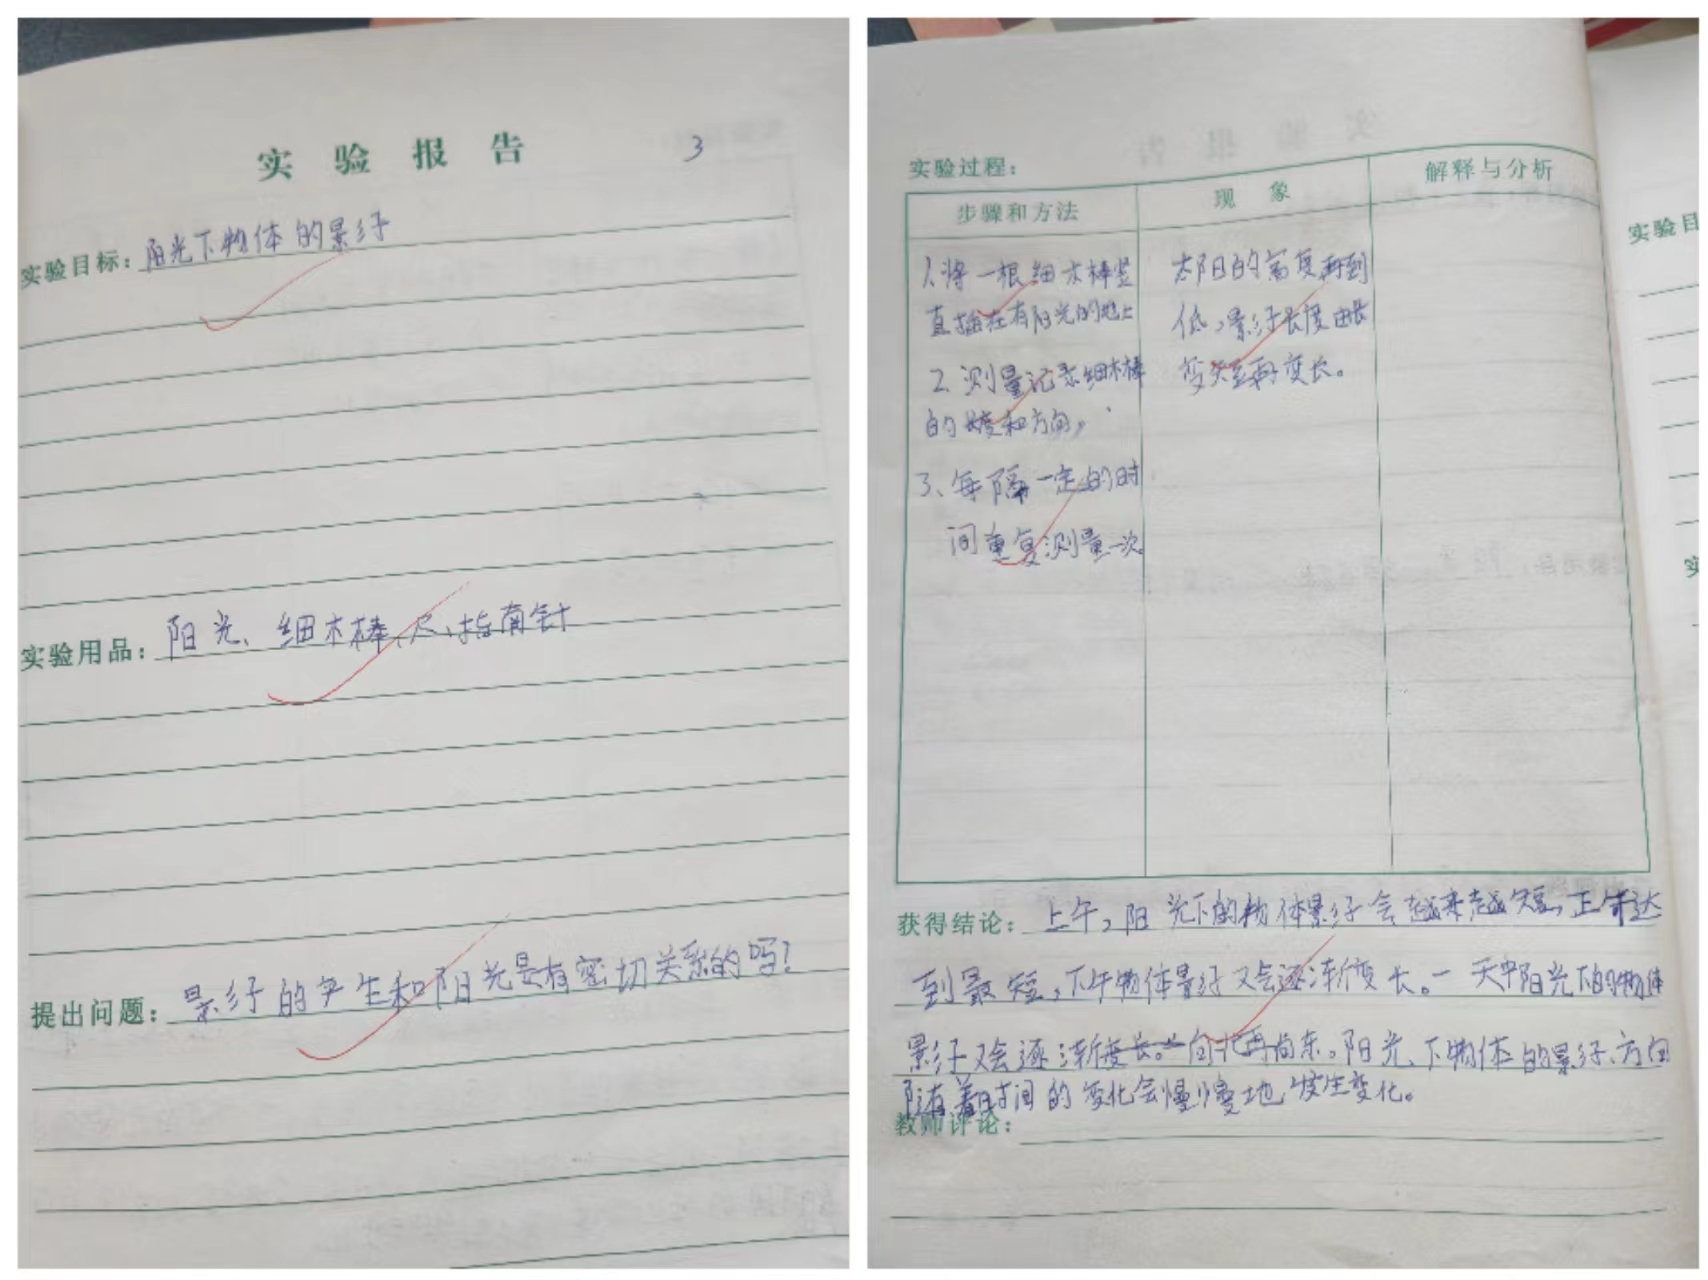 实验报告
3
实验目标：阳光下物体的影子
实验用品：阳光、细木棒、尺、指南针
提出问题：影子的产生和阳光是有密切关系的吗？
实验过程：
步骤和方法
现象
解释与分析
1、将一根细木棒竖
直插在有阳光的地上
2、测量记录细木棒
的长度和方向，
3、每隔一定的时
间重复测量一次
太阳的高度再到
低，影子长度由长
变短再变长。
获得结论：上午，阳光下的物体影子会越来越短，正午达
到最短，下午物体影子又会逐渐变长。一天中阳光下的物体
影子又会逐渐变长。向北再向东。阳光、下物体的影子、方向
随着时间的变化会慢慢地发生变化。
教师评论：
实验目
实